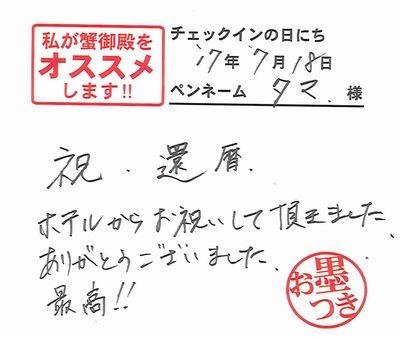 私が蟹御殿を
オススメ
します!!
チェックインの日にち
'17年7月18日
ペンネーム タマ. 様
祝・還暦.
ホテルからお祝いして頂きました.
ありがとうございました.
最高!!
お墨つき